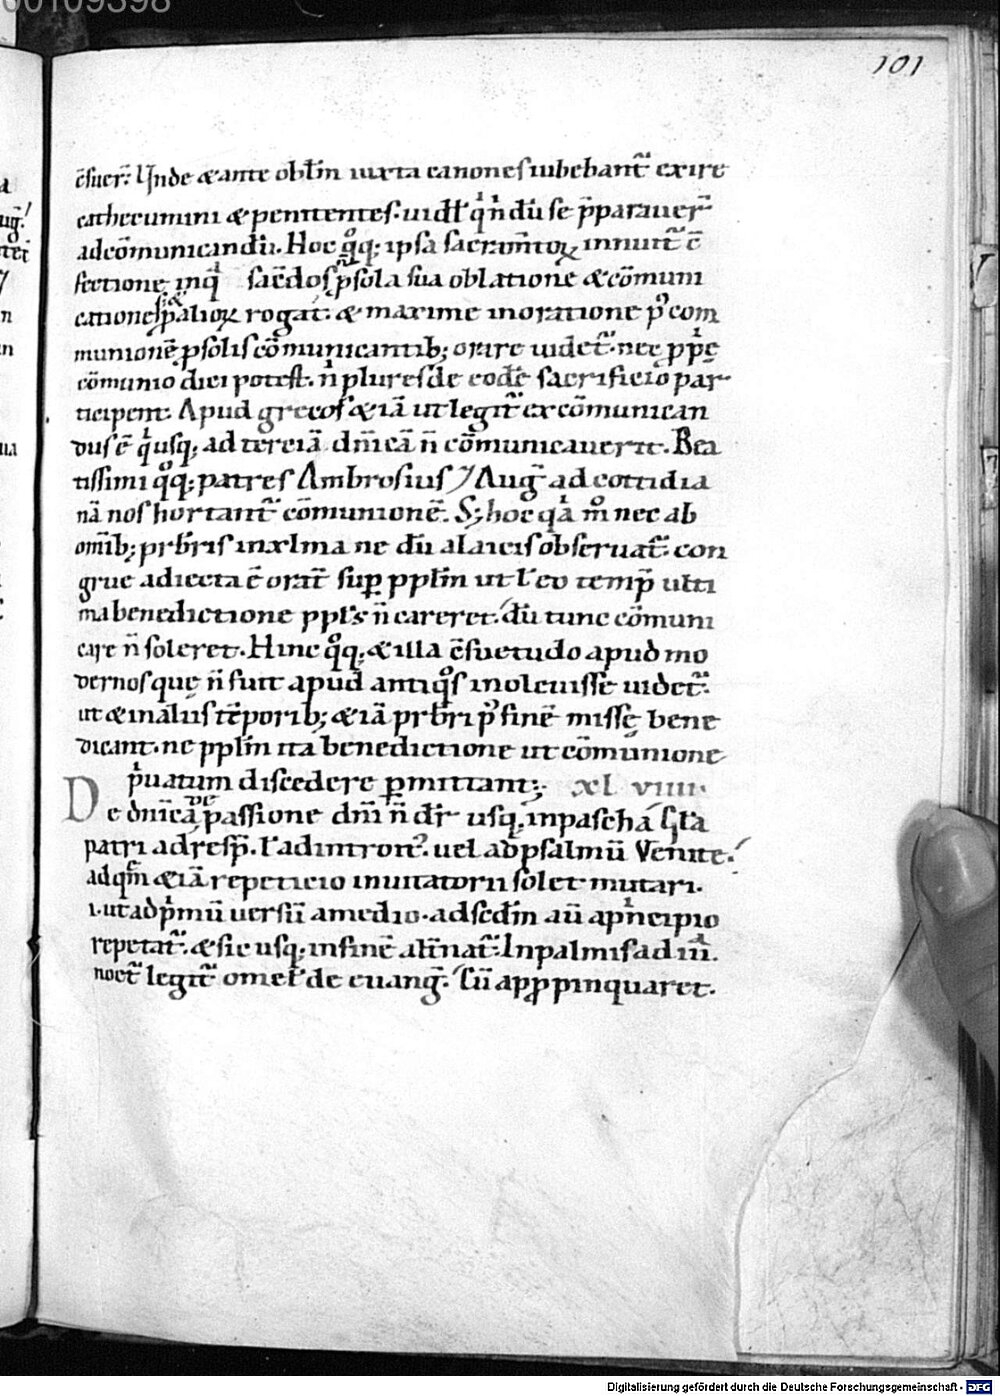 00109398
101
c̄suer̄. Unde & ante oblīm iuxta canones iubebant᷒ exire
cathecumini & penitentes. uidl̃ qͥ nc̄dū se p̄parauer̄
ad cōmunicandū. Hoc qͦq; ipsa sacram̄toꝝ innuit᷒ c̄
fectione. in qͣ sac̄dos n̄ p̄ sola sua oblatione & cōmuni
catione sꝫ & p̱ alioꝝ rogat. & maxime in oratione pͦ com
munionē ꝓ solis cōmunicantib; orare uidet᷒. nec ꝓpͥę
cōmunio dici potest. n̄ plures de eodē sacrificio par
ticipent. Apud grecos & iā ut legit᷒ excōmunican
dus ē qͥ usq; ad terciā dn̄icā n̄ cōmunicauerit. Bea
tissimi qͦq; patres Ambrosius ⁊ Aug̃ ad cottidia
nā nos hortant᷒ cōmunionē. S; hoc qͣ m̊ nec ab
omīb; prb̄ris in xlma ne dū a laicis obseruat᷒. con
grue adiecta ē orat᷒ sup̱ ppl̄m ut l̕ eo temp̱ ulti
ma benedictione ppl̄s n̄ careret. dū tunc cōmuni
care n̄ soleret. Hinc qͦq; & illa c̄suetudo apud mo
dernos quę n̄ fuit apud antiqͦs inoleuisse uidet᷒.
ut & in aliis tēporib; & iā prb̄ri pͦ finē missę bene
dicant. ne ppl̄m ita benedictione ut cōmunione
pͥuatum discedere p̱mittant; xl viiii.
De dn̄ica de passione dn̄i n̄ dr̄ usq; in pascha Gl̄a
patri ad resp̄. l̕ ad introit᷒. uel ad psalmū Venite.
ad qm̄ & iā repeticio inuitatorii solet mutari.
.i. ut ad pͥmū uersū a medio. ad sedm̄ aū a pͥncipio
repetat᷒. & sic usq; in finē alt̄nat᷒. In palmis ad iii.
noct᷒ legit᷒ omel̕ de euang̃. Cū apꝓpinquaret.
Digitalisierung gefördert durch die Deutsche Forschungsgemeinschaft - DFG